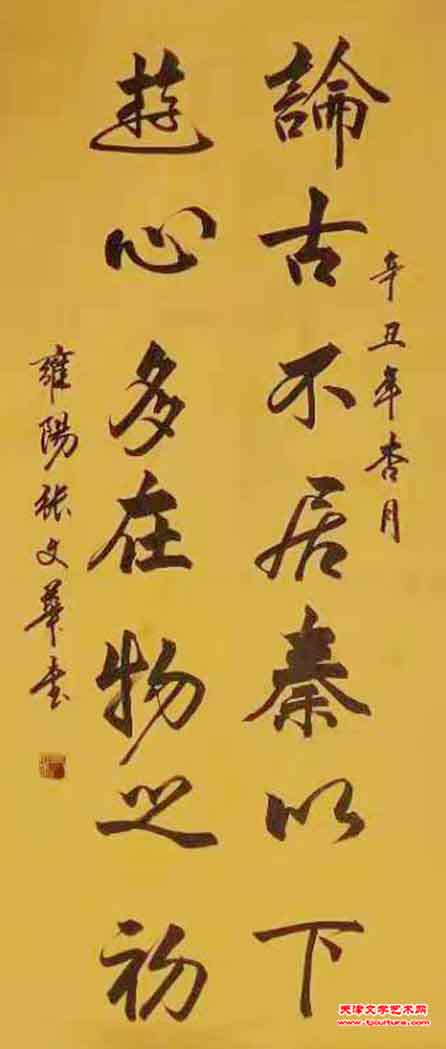 辛丑年杏月
論古不居秦以下
遊心多在物之初
雍陽張文華書
天津文学艺术网
www.tjcultura.com